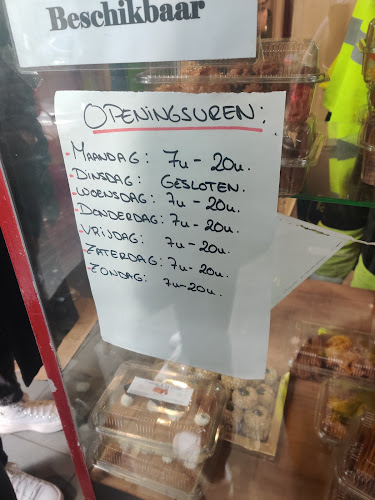 Beschikbaar
OPENINGSUREN:
- MAANDAG: 7u - 20u.
- DINSDAG: GESLOTEN.
- WOENSDAG: 7u - 20u.
- DONDERDAG: 7u - 20u.
- VRIJDAG: 7u - 20u.
- ZATERDAG: 7u - 20u.
- ZONDAG: 7u - 20u.